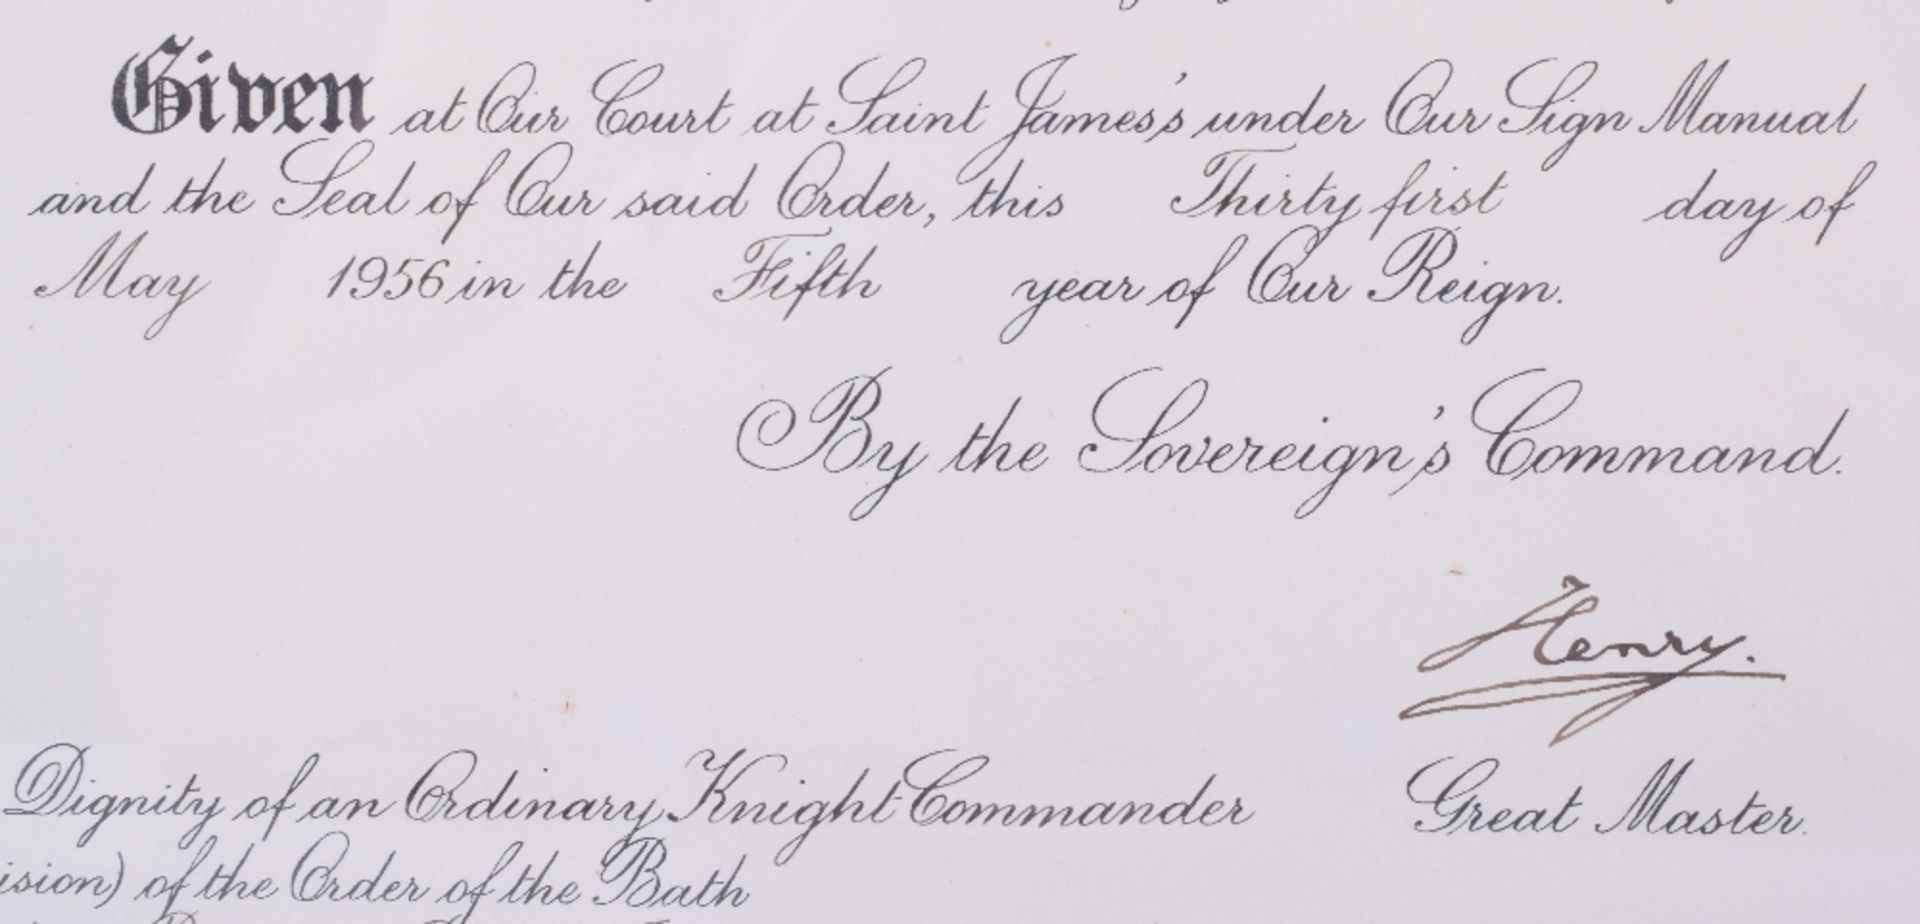 Given at Our Court at Saint James's under Our Sign Manual
and the Seal of Our said Order, this Thirty first day of
May 1956 in the Fifth year of Our Reign.
By the Sovereign's Command.
Henry.
Dignity of an Ordinary Knight Commander Great Master.
ision) of the Order of the Bath